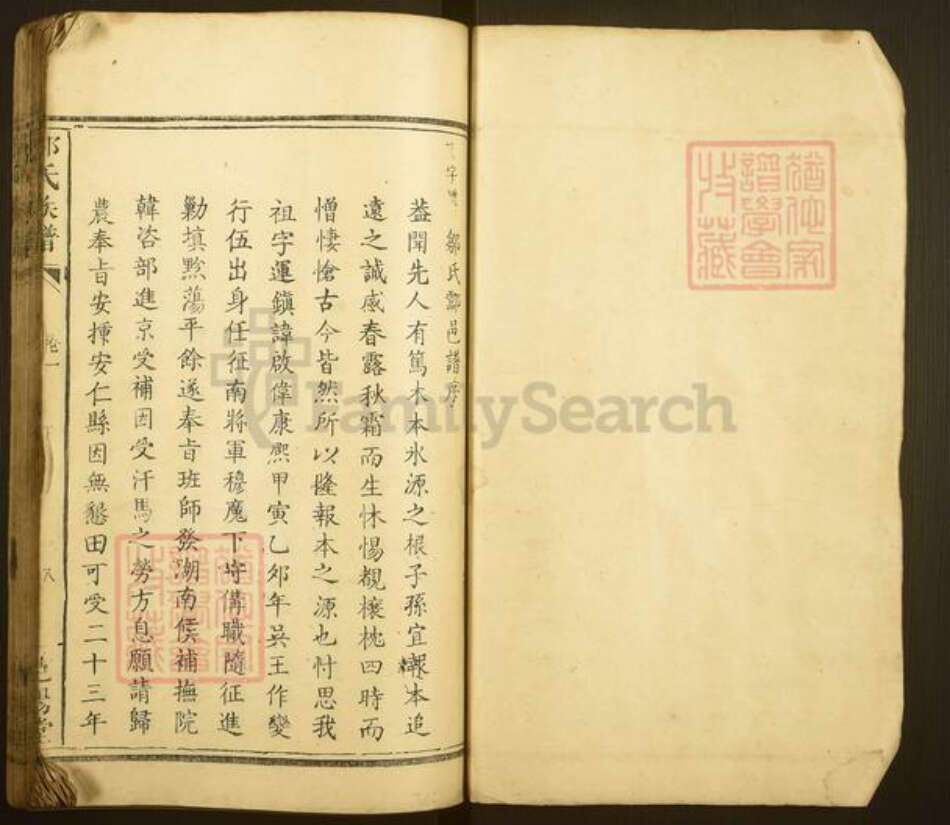 鄒氏酃邑譜序
葢聞先人有篤木本水源之根子孫宜報本追
遠之誠感春露秋霜而生怵惕覩榱桷四時而
憎悽愴古今皆然所以隆報本之源也忖思我
祖字運鎮諱啟偉康熙甲寅乙卯年吳王作變
行伍出身任征南將軍穆麾下守俻職隨征進
勦填黔蕩平餘遂奉㫖班師發湖南候補撫院
韓咨部進京受補因受汗馬之勞方息願請歸
農奉㫖安揷安仁縣因無懇田可受二十三年
氏族譜
卷一
八
堂
FamilySearch